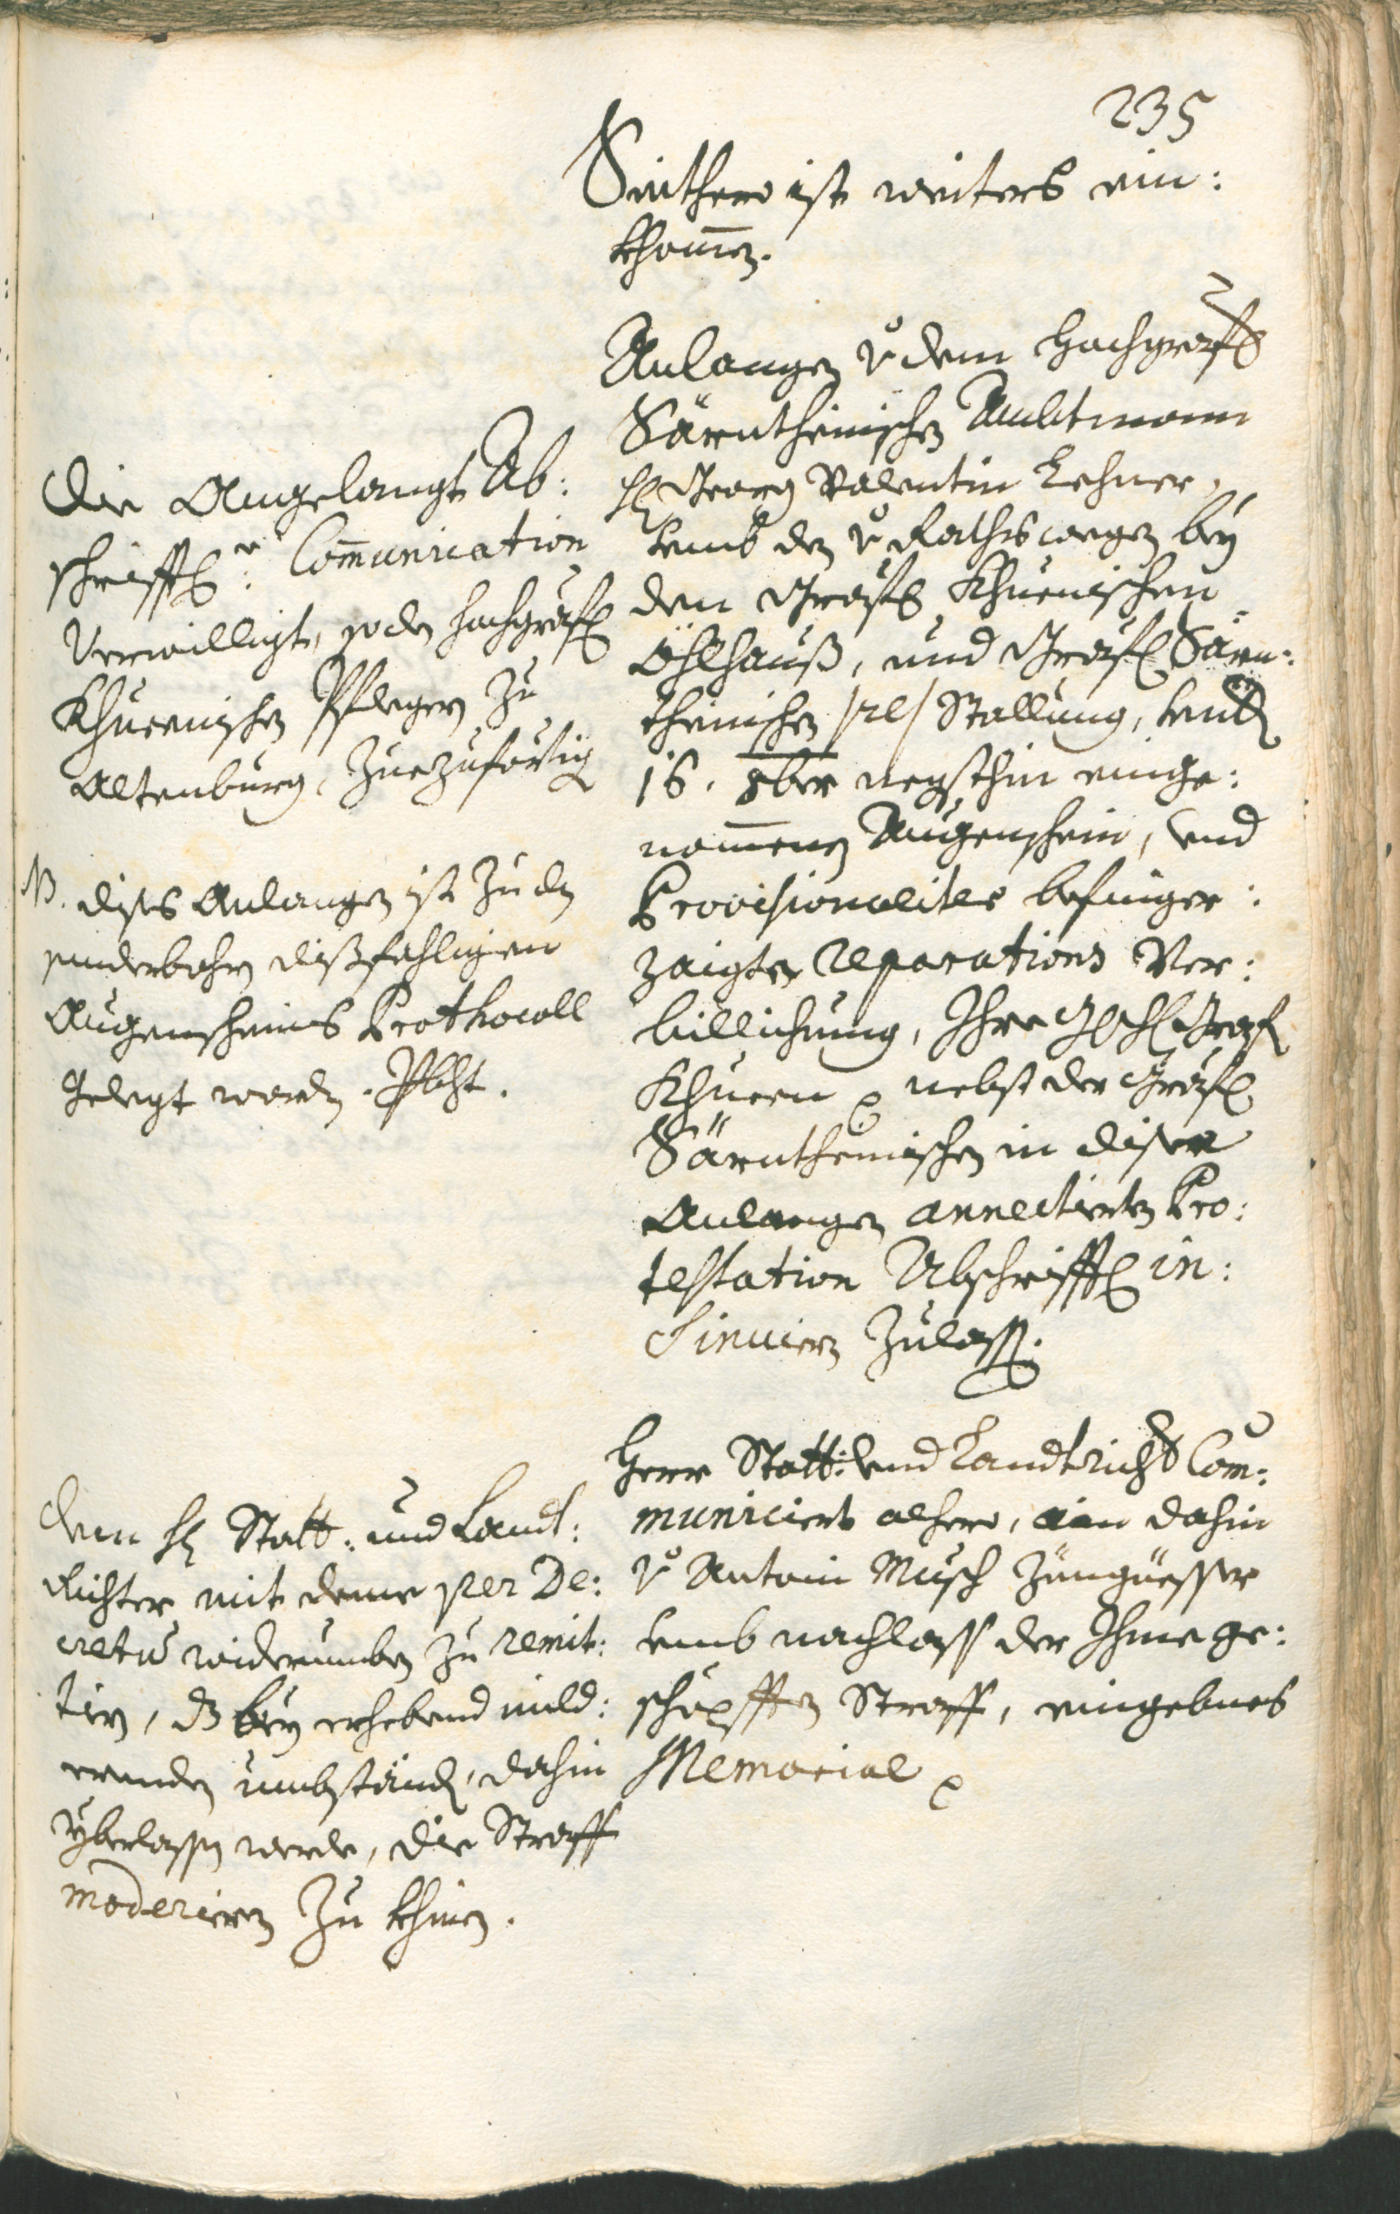 235
Seithero ist weiters ein:
khomen.
Anlangen v. dem hochgräfl
Särntheinischen Ambtmann
H Georg Valentin Lehner,
umb den v. Raths wegen bey
dem Gräfl Khuenischen
Öhlhauß, und Gräfl Särn:
theinischen /re/ Stallung, undt
16. 8ber negsthin einge:
nomenen Augenschein, und
Provisionaliter befinger:
zaigten reparations Ver:
billichung, Ihro Graf
Khuen nebst der Gräfl
Särntheinischen in diser
Anlangen annectierten Pro:
testation Abschrifft in:
sinuiern zulassen.
Die Angelangte Ab:
schrifft: Communication
Verwilligt, so dem hochgräfl
Khuenischen Pfleger zu
Altenburg, Zuezuförtig
NB. dises Anlangen ist zu den
sonderbahren dißfahligen
Augenscheins Prothocoll
gelegt worden.
Herr Statt: und Landtricht Com:
municiert alhero, ain dahin
v. Antoni Musch Züngüesser
umb nachlass der Ihme ge:
schöpfften Straff, eingebnes
Memorial
dem H Statt: und Landt:
Richter mit deme per De:
cretum widerumben zu remit:
tirn, dz bey erhebend mild:
erenden umbständ, dahin
yberlassen werde, die Straff
moderieren zu khinen.